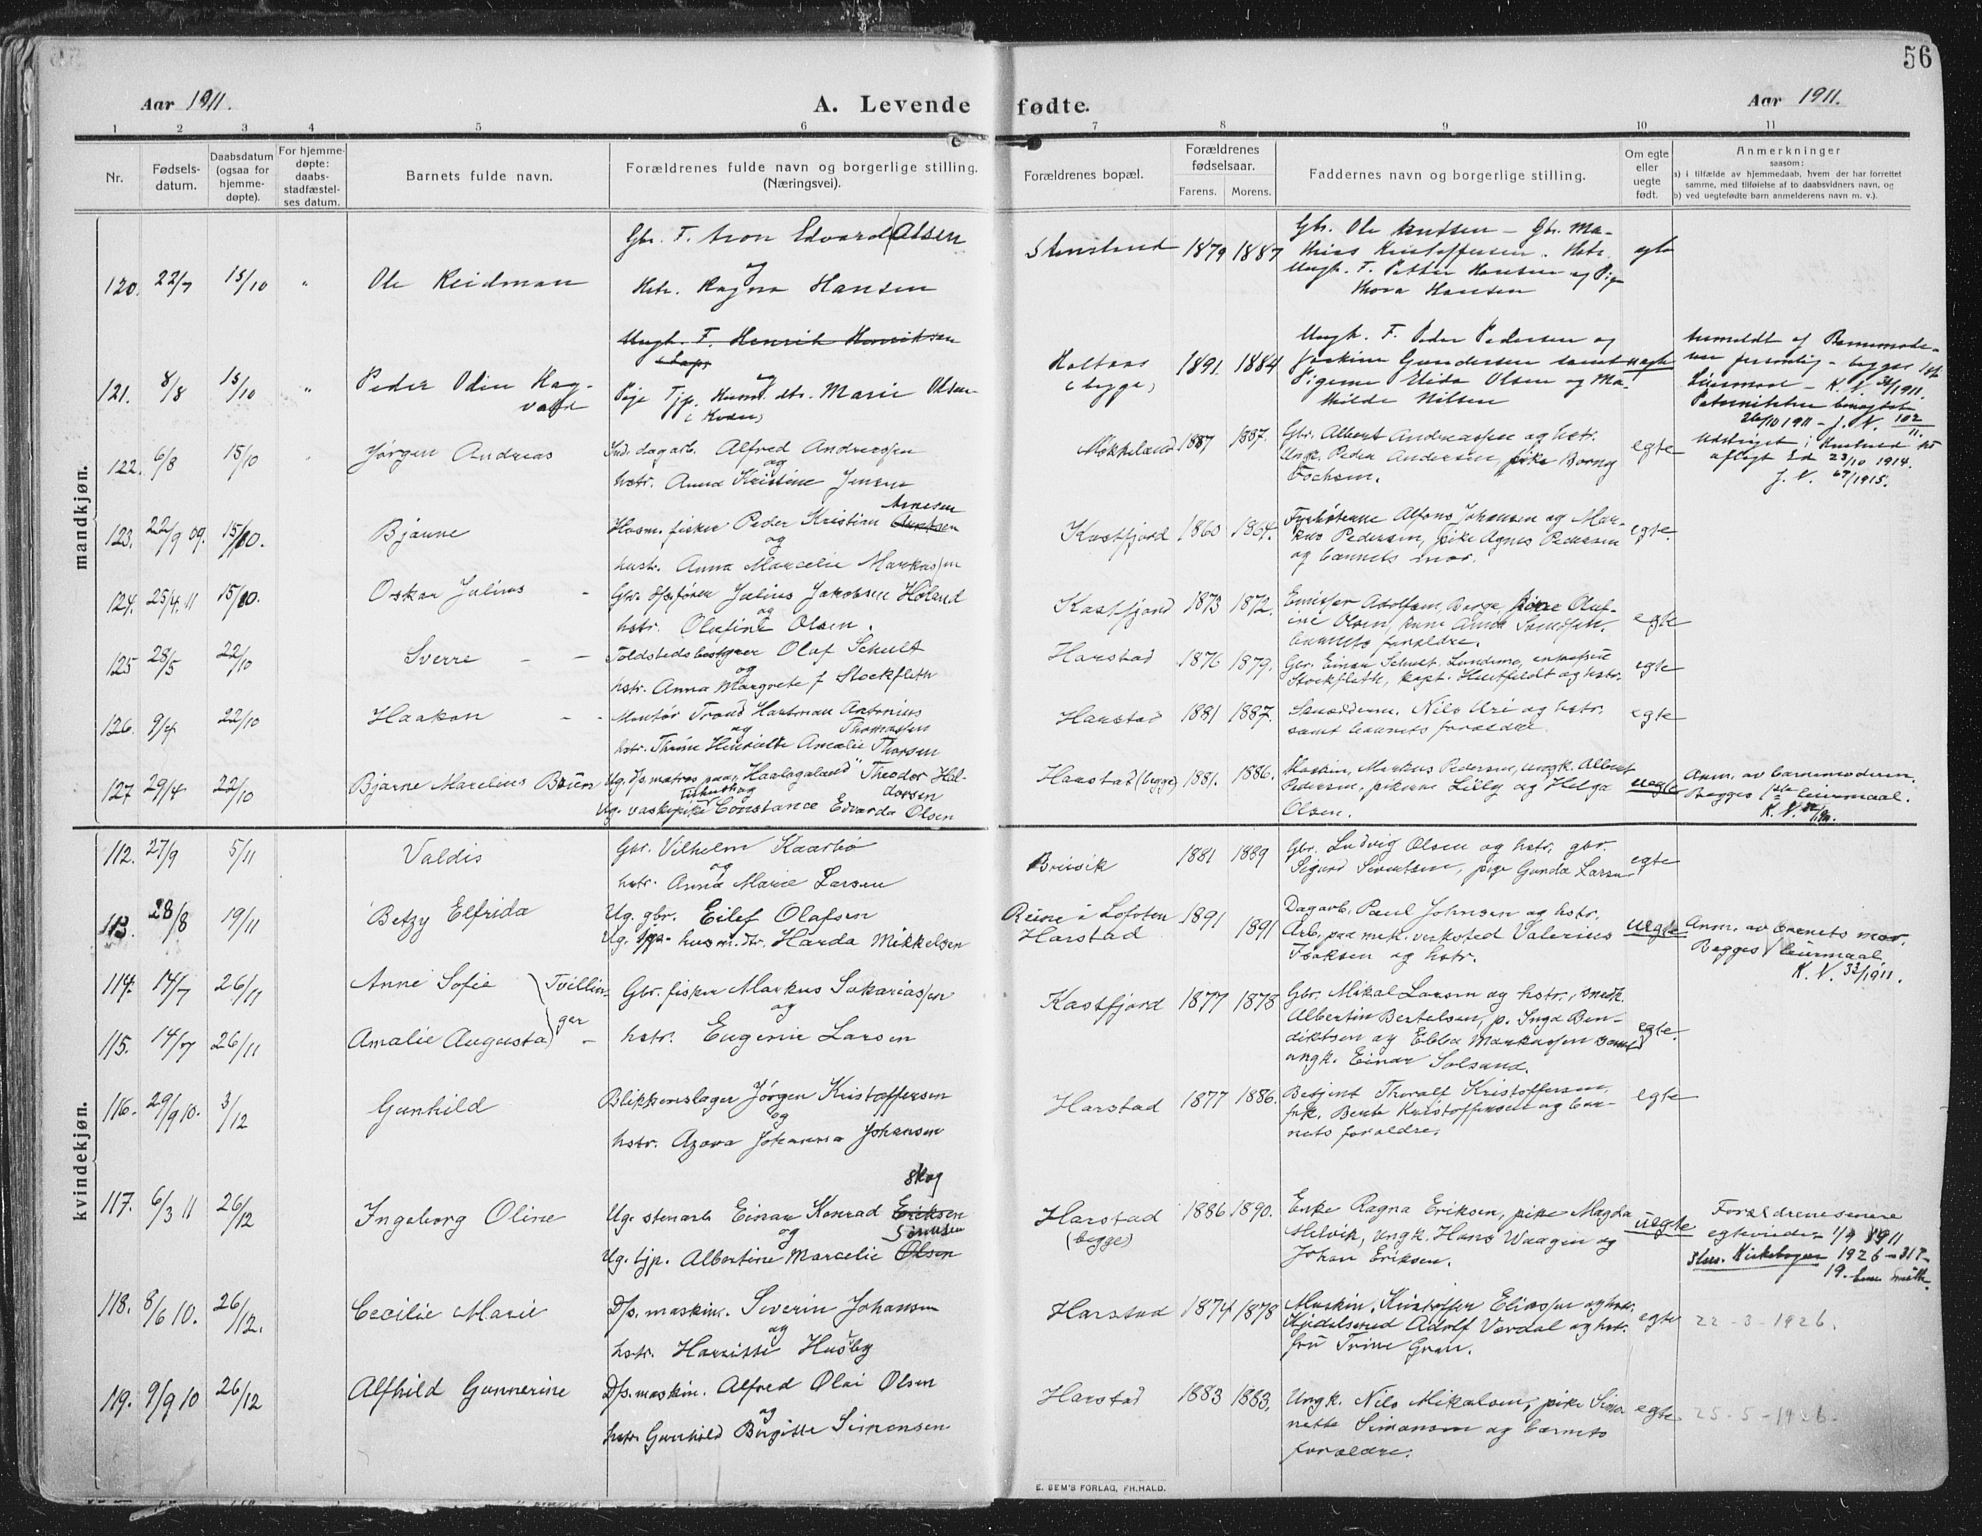 56
Aar 1911.
A. Levende fødte.
Aar 1911.
1 2 3 4 5 6 7 8 9 10 11
Nr.
Fødselsdatum.
Daabsdatum (ogsaa for hjemmedøpte).
For hjemmedøpte: daabsstadfæstelses datum.
Barnets fulde navn.
Forældrenes fulde navn og borgerlige stilling.
(Næringsvei).
Forældrenes bopæl.
Forældrenes fødselsaar.
Farens. Morens.
Faddernes navn og borgerlige stilling.
Om egte eller uegte født.
Anmerkninger
saasom:
a) i tilfælde av hjemmedaab, hvem der har forrettet
samme, med tilføielse af to daabsvidners navn, og
b) ved uegtefødte barn anmelderens navn m. v.).
mandkjøn.
120. 22/7 15/10 " Ole Reidman
Gbr. T. Aron Edvard Olsen
og
Hstr. Ragna Hansen
1879 1887
Gbr. Ole Knutsen – Gbr. Ma-
thias Kristoffersen. Hstr.
Ungk. F. Petter Hansen og Pige
Thora Hansen
egte
121. 8/8 15/10 " Peder Odin Hag-
vald
Ungk. F. Henrik Henriksen
og
Pige Tjp. Husm. dtr. Marie Olsen
Holtaas
(begge)
1891. 1884
Ungk. F. Peder Pedersen og
Gundersen samt
Pigerne Elida Olsen og Ma-
thilde Nilsen
uegte
Anmeldt af Barnemode-
ren personlig – begges 1ste
Leiermaal – K. N. 1911.
26/10 1911 – J. N. 102/11.
122. 6/8 15/10 Jørgen Andreas
Ind. dagarb. Alfred Andreassen
og
hstr. Anna Kristine Jensen
Møkkeland 1887 1887.
Gbr. Albert Andreassen og hstr.
Ungk. Peder Andersen, pike Borny
Tochsen.
egte
23/10 1914.
J. N. 67/1915.
123. 22/9 09. 15/10. Bjarne
Husm. fisker Peder Kristian Arnesen
og
hustr. Anna Marcelie Markussen
Kastfjord 1860 1864.
Alfons Johansen og Mar-
kus Pedersen, pike Agnes Pedersen
og barnets mor.
egte.
124. 25/4.11 15/10. Oskar Julius –
Gbr. Julius Jakobsen Høland
og
hstr. Olufine Olsen.
Kastfjord 1873 1872.
Emissær Adolfsen Borge, Oluf-
ine Olsen,
barnets forældre.
egte
125 28/5 22/10 Sverre – –
Toldstedsbestyrer Olaf Schult
og
hstr. Anna Margrete f Stockfleth
Harstad 1876 1879.
Gbr. Einar Schult.
Stockfleth, kapt. Huitfeldt og hstr.
egte
126. 9/4 22/10 Haakon – –
Montør Trond Hartman Antonius
og Thomassen
hstr. Henriette Amalie Thorsen
Harstad 1881 1887.
Nils Uri og hstr.
samt barnets forældre.
egte
127 29/4 22/10 Bjarne Marelius Bruun
Ug. D/s matros paa „Haalogaland" Theodor Hal-
og dorsen
Ug. vaskepike Constance Edvarda Olsen
Harstad (begge) 1881. 1886.
Maskin. Markus Pedersen, ungk. Albert
Pedersen, pikerne Lilly og Helga
Olsen.
uegte
Anm. av barnemoderen.
Begges 1ste leiermaal.
K. N.
kvindekjøn.
112. 27/9 5/11 Valdis
Gbr. Vilhelm Kaarbø
og
hstr. Anna Marie Larsen
Breivik 1881 1889
Gbr. Ludvig Olsen og hstr. gbr.
Sigurd Sivertsen, pige Gunda Larsen
egte
113. 28/8 19/11 Betzy Elfrida
Ug. gbr. Eilef Olafsen
Ug. husm. dtr. Harda Mikkelsen
Reine i Lofoten
Harstad
1891
1891
Dagarb. Paul Johnsen og hstr.
Arb. paa mek. verksted Valerius
Isaksen og hstr.
uegte
Anm. av barnets mor.
Begges 1 leiermaal
K. N. 33/1911.
114. 14/7 26/11 Anne Sofie
Tvillin-
ger
115. 14/7 26/11 Amalie Augusta –
Gbr. fisker Markus Sakariassen
og
hstr. Eugenie Larsen
Kastfjord 1877 1878
Gbr. Mikal Larsen og hstr.,
Albertin Bertelsen, p. Inga Ben-
diktsen og Ebba Markussen samt
ungk. Einar Solsand.
egte.
116. 29/9 10. 3/12 Gunhild
Blikkenslager Jørgen Kristoffersen
og
hstr. Azora Johanna Johansen
Harstad 1877 1886.
Betjent Thoralf Kristoffersen,
frk. Bente Kristoffersen og bar-
nets forældre.
egte
117. 6/3 11 26/12 Ingeborg Oline
Skog
Ug. stenarb Einar Konrad Eriksen
og Simonsen
Ug. tjp. Albertine Marcelie Olsen
Harstad
(begge)
1886 1890.
Enke Ragna Eriksen, pike Magda
Helvik, ungk. Hans Waagen og
Johan Eriksen.
uegte
Forældrene senere
egteviede 1/9 1911
Kirkebogen 1926 – 317 –
19.
118. 8/6 10. 26/12. Cecilie Marie
D/s. maskin. Severin Johansen
og
hstr. Harriette Husby
Harstad 1874 1878
Maskin. Kristoffer Eliassen og hstr.
Adolf Værdal og hstr.
frú Trine Gran.
egte
22–3–1926.
119. 9/9 10 26/12 Alfhild Gunnerine
D/s. maskin. Alfred Olai Olsen
og
hstr. Gunhild Birgitte Simonsen
Harstad 1883 1883.
Ungk. Nils Mikalsen, pike Simo-
nette Simonsen og barnets
forældre.
egte.
25–5–1926.
E. SEM'S FORLAG, FH.HALD.